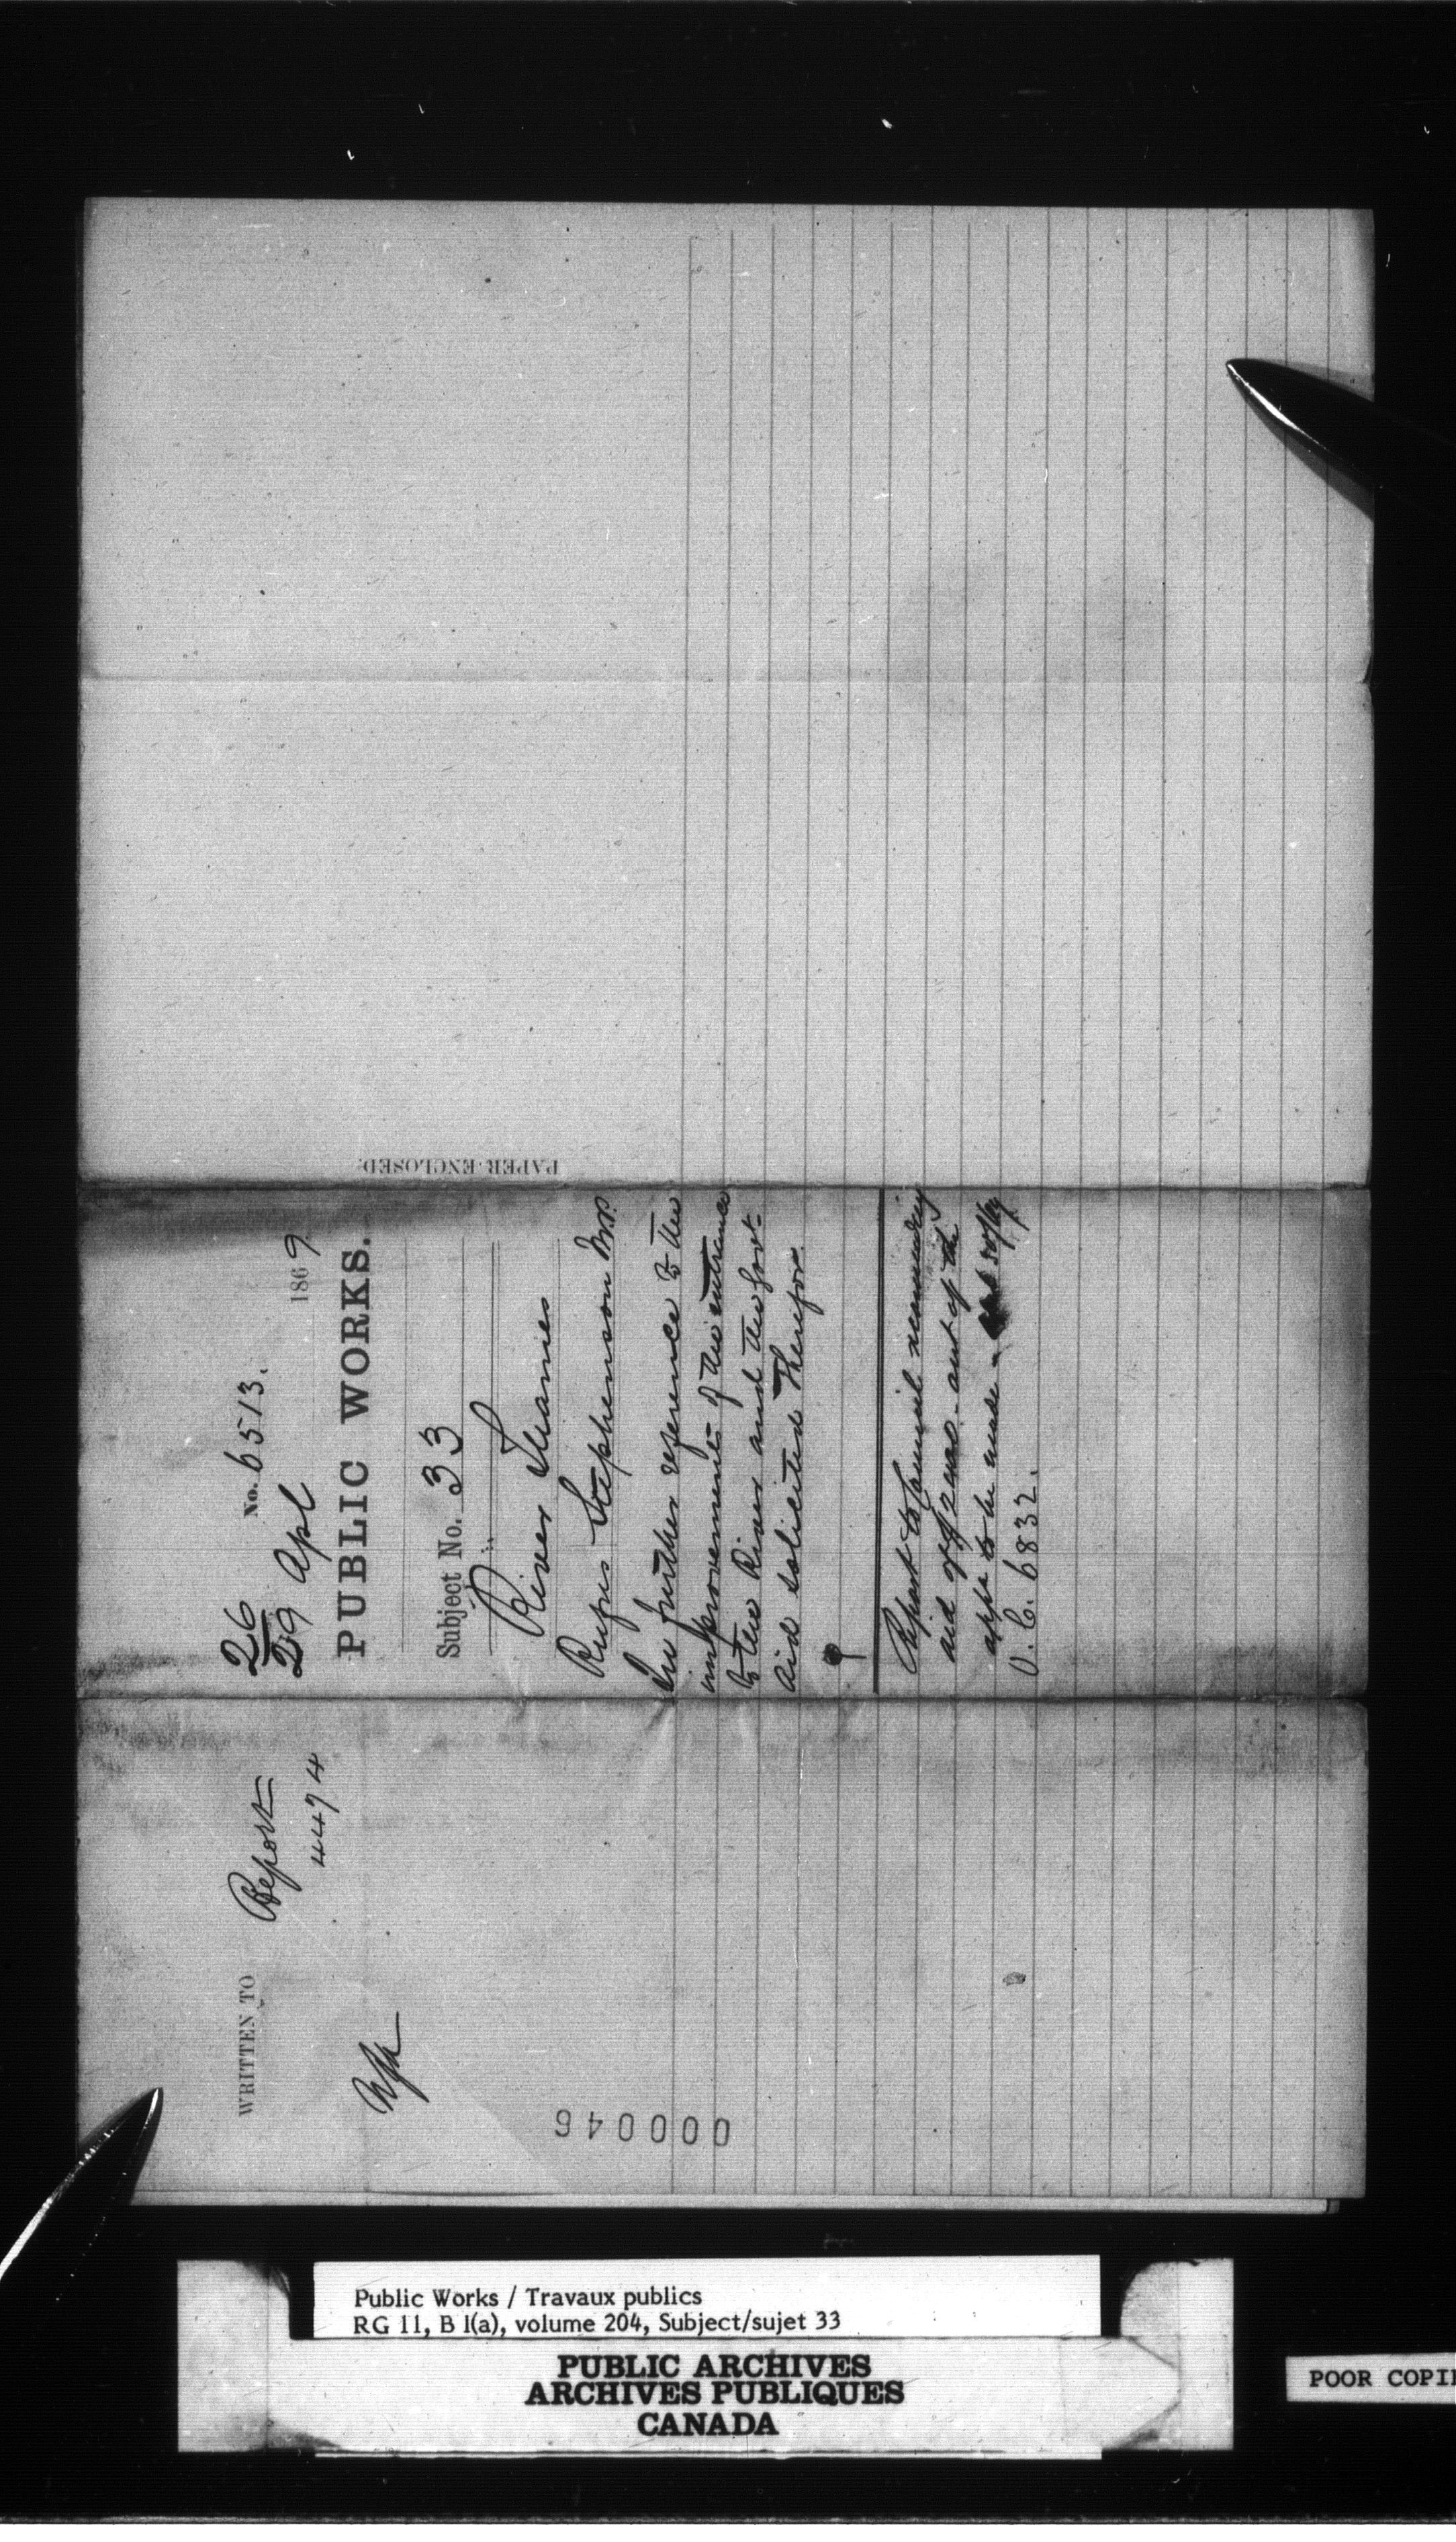 WRITTEN TO
Report
4474
000046
26
29 Apl 1869
No. 6513.
PUBLIC WORKS.
Subject No. 33
River Thames
Rufus Stephenson M.P.
In further reference to the
improvements of the entrance
to the River and the Govt
aid solicited therefor.
Report to Council recommending
aid of $2000. out of the
app. to be made
O. C. 6832.
PAPER ENCLOSED.
Public Works / Travaux publics
RG 11, B 1(a), volume 204, Subject/sujet 33
PUBLIC ARCHIVES
ARCHIVES PUBLIQUES
CANADA
POOR COPI